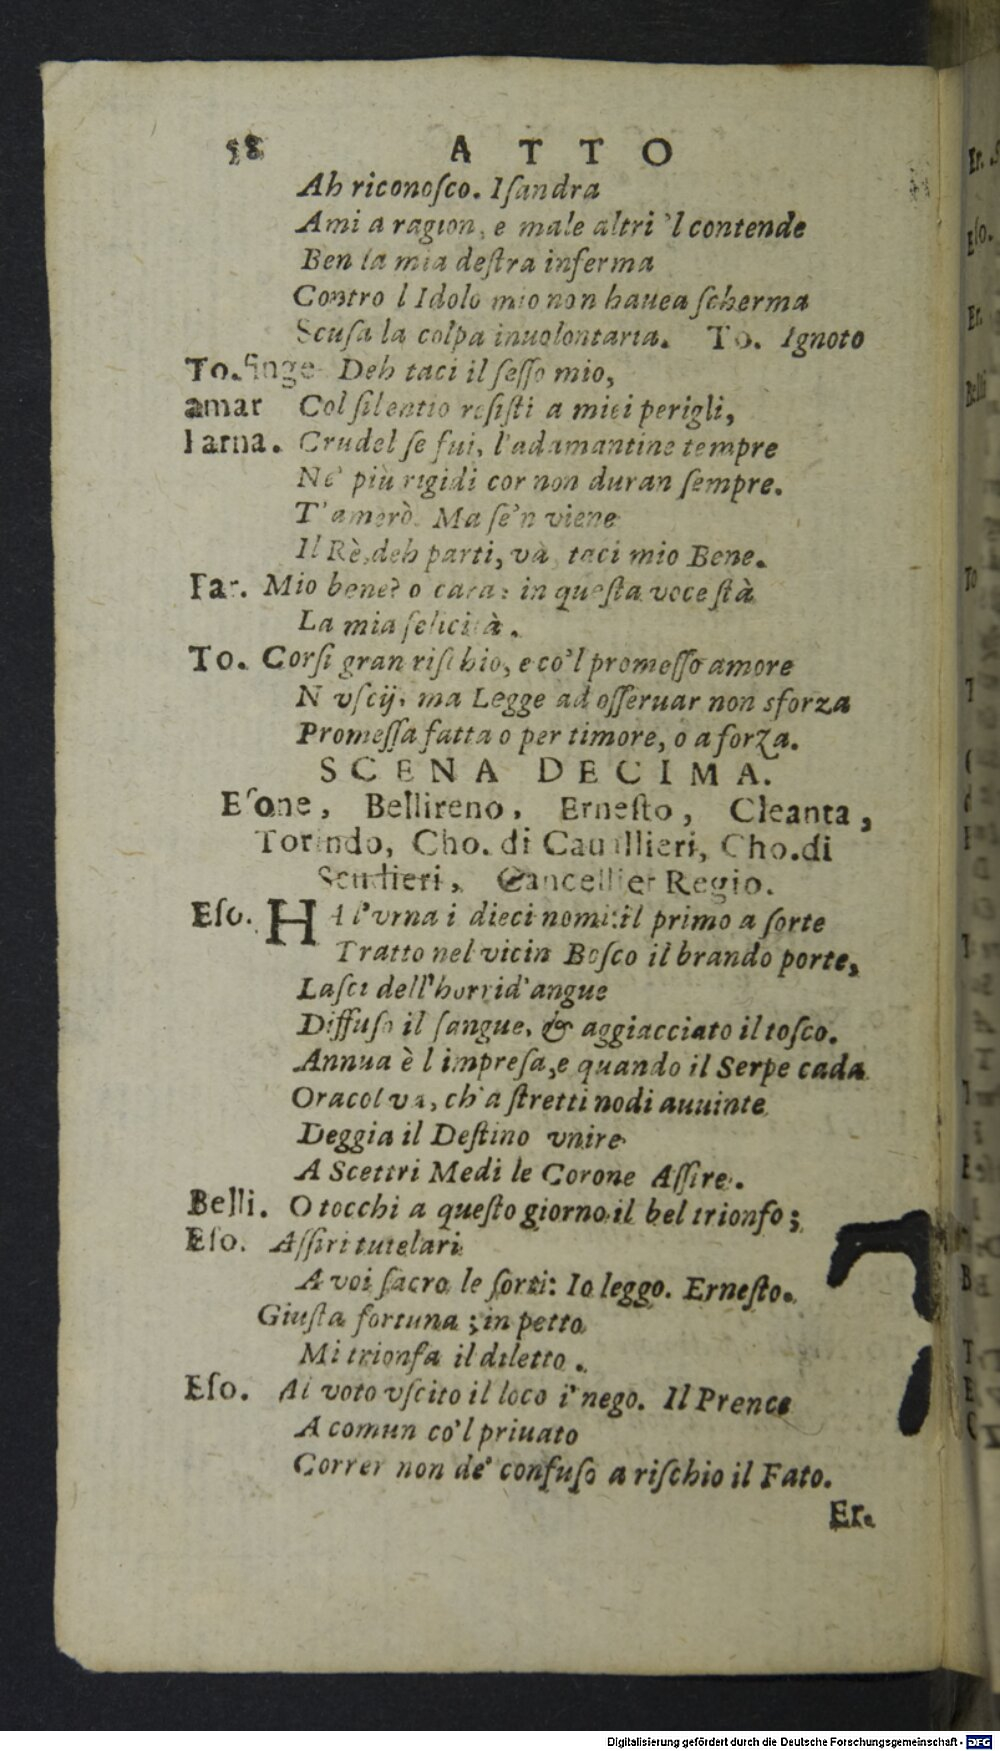 58 ATTO
Ah riconoſco. Iſandra
Ami a ragion, e male altri 'l contende
Ben la mia deſtra inferma
Contro l Idolo mio non hauea ſcherma
Scuſa la colpa inuolontaria. To. Ignoto
To. finge Deh taci il ſeſſo mio,
amar Col ſilentio reſiſti a miei perigli,
Iarna. Crudel ſe fui, l'adamantine tempre
Ne' più rigidi cor non duran ſempre.
T'amerò. Ma ſe'n viene
Il Rè, deh parti, và, taci mio Bene.
Far. Mio bene? o cara: in queſta voce ſtà
La mia felicità.
To. Corſi gran riſchio, e co'l promeſſo amore
N vſcij, ma Legge ad oſſeruar non sforza
Promeſſa fatta o per timore, o a forza.
SCENA DECIMA.
Eſone, Bellireno, Erneſto, Cleanta,
Torindo, Cho. di Cauallieri, Cho. di
Scudieri, Cancellier Regio.
Eſo. HA l'vrna i dieci nomi: il primo a ſorte
Tratto nel vicin Boſco il brando porte,
Laſci dell'horrid'angue
Diffuſo il ſangue, & aggiacciato il toſco.
Annua è l impreſa, e quando il Serpe cada
Oracol va, ch'a ſtretti nodi auuinte
Deggia il Deſtino vnire
A Scettri Medi le Corone Aſſire.
Belli. O tocchi a queſto giorno il bel trionfo;
Eſo. Aſſiri tutelari
A voi ſacro le ſorti: Io leggo. Erneſto.
Giuſta fortuna; in petto
Mi trionfa il diletto.
Eſo. Al voto vſcito il loco i' nego. Il Prence
A comun co'l priuato
Correr non de' confuſo a riſchio il Fato.
Er.
Digitalisierung gefördert durch die Deutsche Forschungsgemeinschaft - DFG